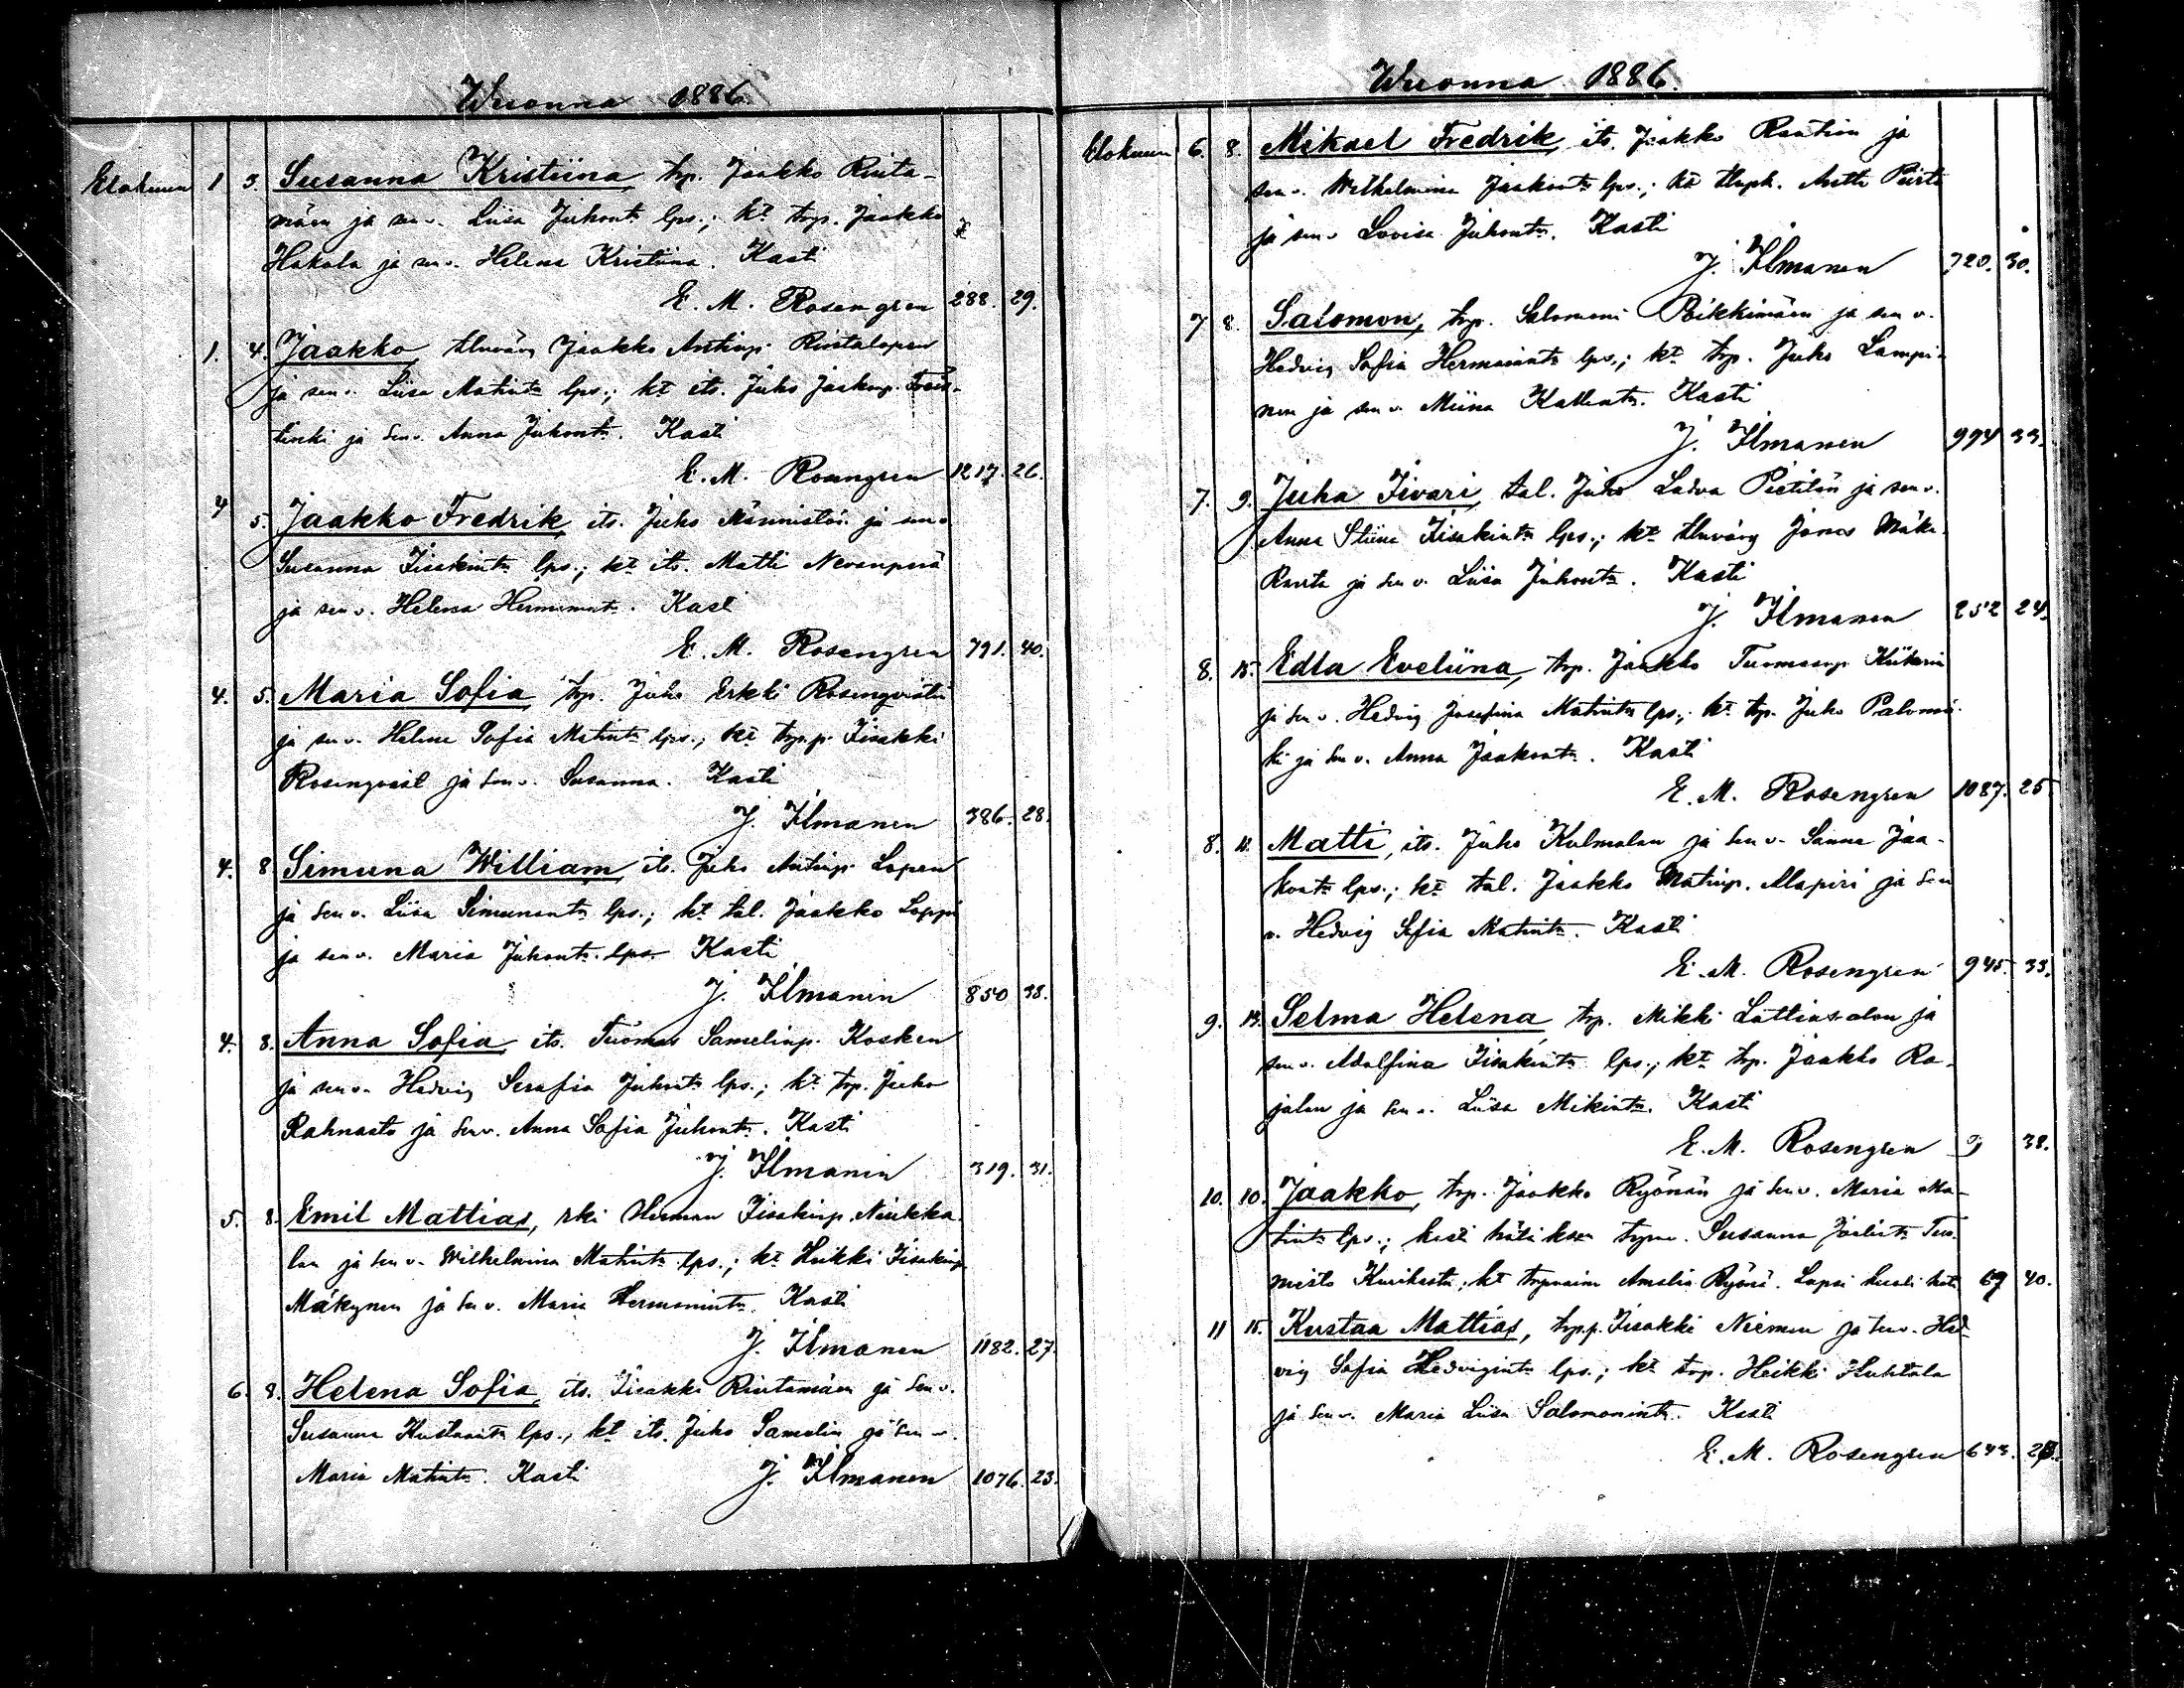 Wuonna 1886.
Elokuun 1 3. Susanna Kristiina, trp. Jaakko Rinta-
mäen ja sen v. Liisa Juhontr lps.; kt trp. Jaakko
Hakala ja sen v. Helena Kristiina. Kasti
E. M. Rosengren 288. 29.
1. 4. Jaakko, Jaakko Antinp. Rintalopen
ja sen v. Liisa Matintr lps.; kt its. Juho Jaakonp.
ja sen v. Anna Juhontr. Kasti
E. M. Rosengren 1217. 26.
4 5. Jaakko Fredrik, its. Juho Männistön ja sen v.
Susanna Iisakintr lps.; kt its. Matti Nevanperä
ja sen v. Helena Hermanintr. Kasti
E. M. Rosengren 791. 40.
4. 5. Maria Sofia, trp. Juho Erkki Rosenqvistin
ja sen v. Helena Sofia Matintr lps.; kt trp.p. Iisakki
Rosenqvist ja sen v. Susanna. Kasti
J. Ilmanen 386. 28.
4. 8 Simuna William, its. Juho Antinp. Lopen
ja sen v. Liisa Simunantr lps.; kt tal. Jaakko Loppi
ja sen v. Maria Juhontr. lps. Kasti
J. Ilmanen 850 38.
4. 8. Anna Sofia, its. Tuomas Samelinp. Kosken
ja sen v. Hedvig Serafia Juhontr lps.; kt trp. Juho
Rahnasto ja sen v. Anna Sofia Juhontr. Kasti
J. Ilmanen 319. 31.
5. 8. Emil Mattias, rki Herman Iisakinp. Neukka-
lan ja sen v. Wilhelmina Matintr lps.; kt Heikki Iisakinp.
Mäkynen ja sen v. Maria Hermanintr. Kasti
J. Ilmanen 1182. 27.
6. 8. Helena Sofia, its. Iisakki Rintamäen ja sen v.
Susanna Kustaantr lps., kt its. Juho Samelin ja sen v.
Maria Matintr. Kasti J. Ilmanen 1076. 23.
Wuonna 1886.
Elokuun 6. 8. Mikael Fredrik, its. Jaakko Rantion ja
sen v. Wilhelmina Jaakontr lps.; kt Antti
ja sen v. Lovisa Juhontr. Kasti
J. Ilmanen 720. 30.
7 8. Salomon, trp. Salomoni Poikkimäen ja sen v.
Hedvig Sofia Hermanintr lps.; kt trp. Juho Lampi-
nen ja sen v. Miina Kallentr. Kasti
J. Ilmanen 994 33.
7. 9. Juha Iivari, tal. Juho Ladva Pietilän ja sen v.
Anna Stiina Iisakintr lps.; kt Jonas Mäki-
Ranta ja sen v. Liisa Juhontr. Kasti
J. Ilmanen 252 24.
8. 15. Edla Eveliina, trp. Jaakko Tuomaanp.
ja sen v. Hedvig Josefina Matintr lps.; kt trp. Juho Palomä-
ki ja sen v. Anna Jaakontr. Kasti
E. M. Rosengren 1087. 25
8. Matti, its. Juho Kulmalan ja sen v. Sanna Jaa-
kontr lps.; kt tal. Jaakko Matinp. Alapiri ja sen
v. Hedvig Sofia Matintr. Kasti
E. M. Rosengren 945. 33.
9. Selma Helena, trp. Mikki ja
sen v. Adolfina Iisakintr lps.; kt trp. Jaakko Ra-
jalan ja sen v. Liisa Mikintr. Kasti
E. M. Rosengren 38.
10. 10. Jaakko, trp. Jaakko Ryönän ja sen v. Maria Ma-
tintr lps.; kasti Susanna Joelintr Tuo-
misto Kurikasta; kt trpvaimo Amalia Ryönä. Lapsi 69 40.
11 15. Kustaa Mattias, trp.p. Iisakki Niemen ja sen v. Hed-
vig Sofia Hedvigintr lps.; kt trp. Heikki Huhtala
ja sen v. Maria Liisa Salomonintr. Kasti
E. M. Rosengren 643.